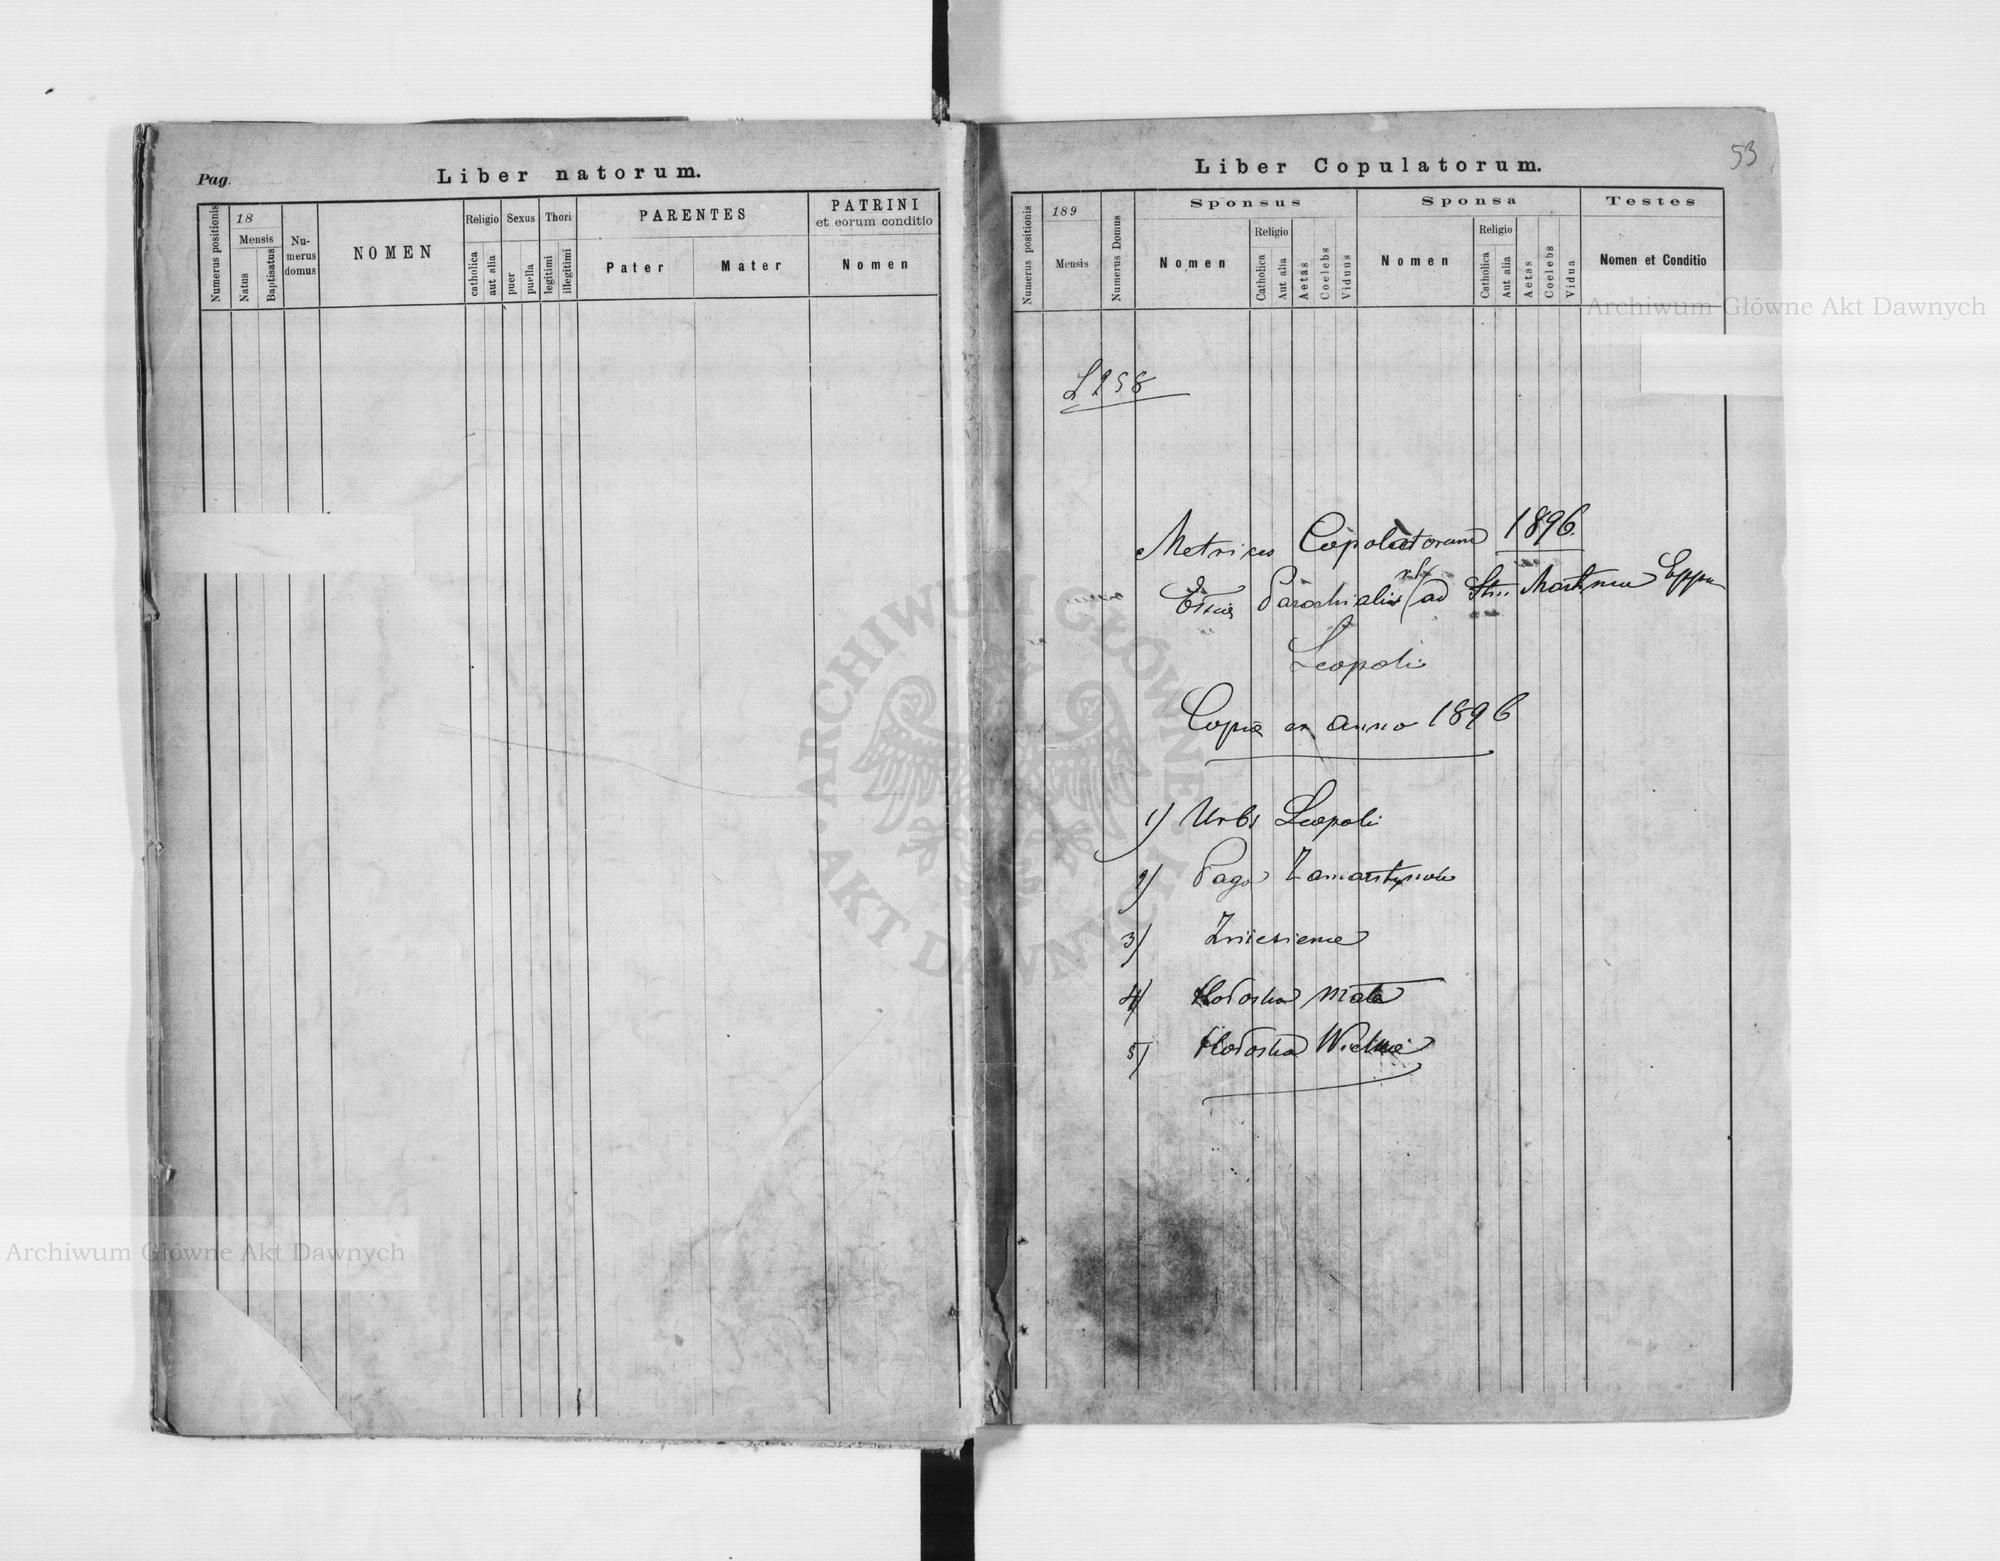 Pag.
Liber natorum.
Numerus positionis
18
Mensis
Natus
Baptisatus
Nu-
merus
domus
NOMEN
Religio
catholica
aut alia
Sexus
puer
puella
Thori
legitimi
illegitimi
PARENTES
Pater
Mater
PATRINI
et eorum conditio
Nomen
53
Liber Copulatorum.
Numerus positionis
189
Mensis
Numerus Domus
Sponsus
Nomen
Religio
Catholica
Aut alia
Aetas
Coelebs
Viduus
Sponsa
Nomen
Religio
Catholica
Aut alia
Aetas
Coelebs
Vidua
Testes
Nomen et Conditio
Archiwum Główne Akt Dawnych
L 258
Metrica Copulatorum 1896.
Parochialis r. l. ad Martinum Eppum
Leopoli
Copia ex anno 1896
1) Urbs Leopoli
2) Pago Zamarstynów
3) Zniesienie
4) Hołosko Małe
5) Hołosko Wielkie
ARCHIWUM GŁÓWNE
AKT DAWNYCH
Archiwum Główne Akt Dawnych